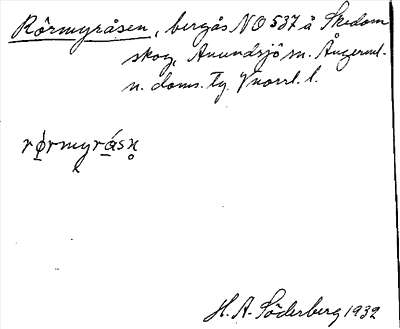 Rörmyråsen, bergås NO 537 å Skedom
skog, Anundsjö sn. Ångerml.
n. doms. Tg. Ynorrl. l.
rørmyrásn̥
H. A. Söderberg 1932